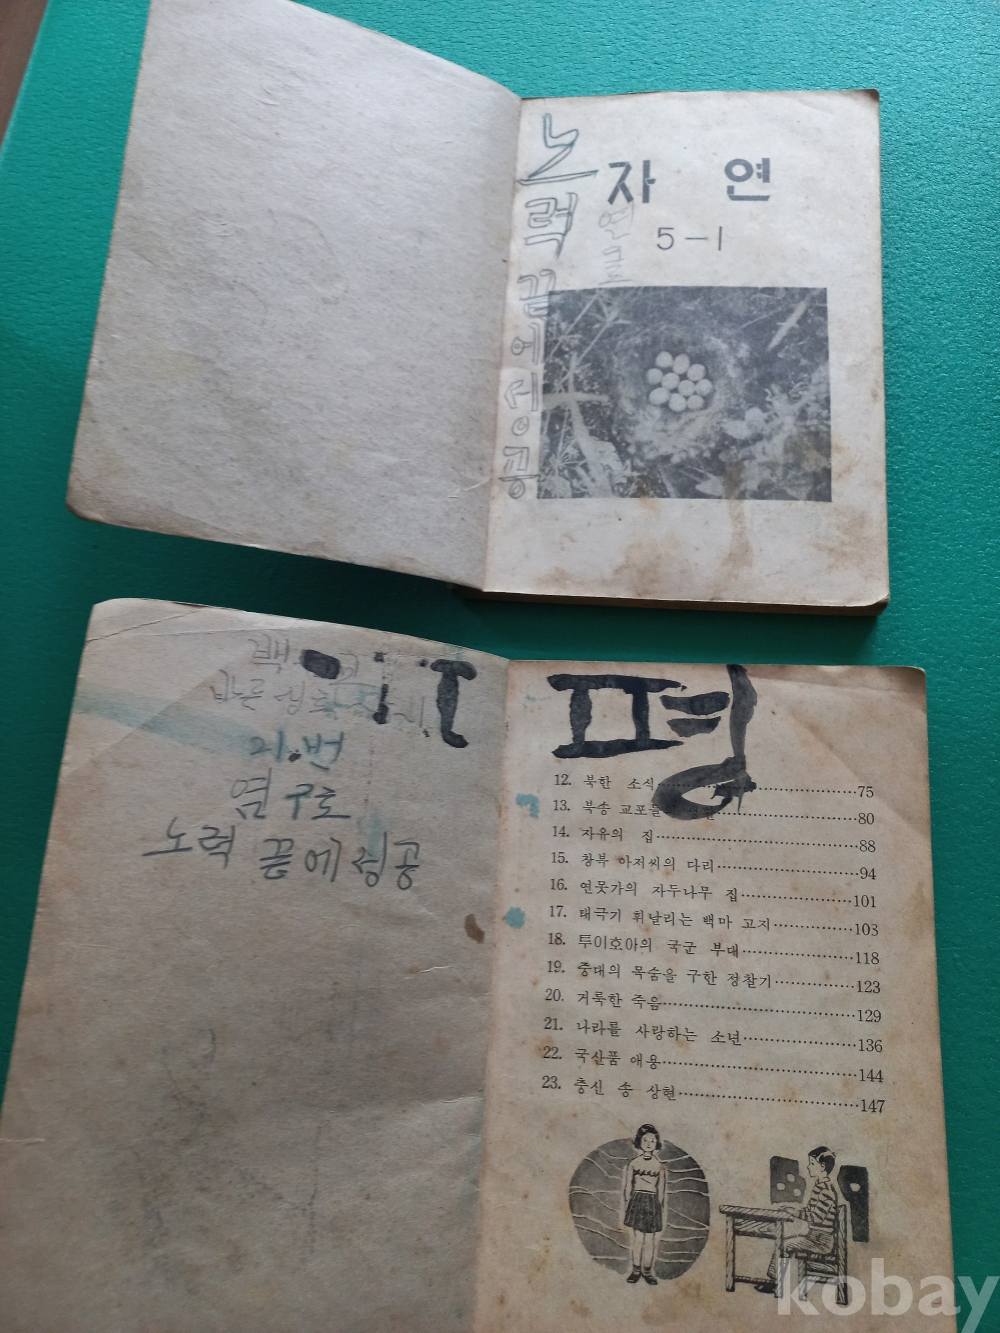 노력 끝에 성공
자 연
5-1
21번
염구호
노력 끝에 성공
평
12. 북한 소식 75
13. 북송 교포들 80
14. 자유의 집 88
15. 창부 아저씨의 다리 94
16. 연못가의 자두나무 집 101
17. 태극기 휘날리는 백마 고지 103
18. 투이호아의 국군 부대 118
19. 중대의 목숨을 구한 정찰기 123
20. 거룩한 죽음 129
21. 나라를 사랑하는 소년 136
22. 국산품 애용 144
23. 충신 송 상현 147
kobay